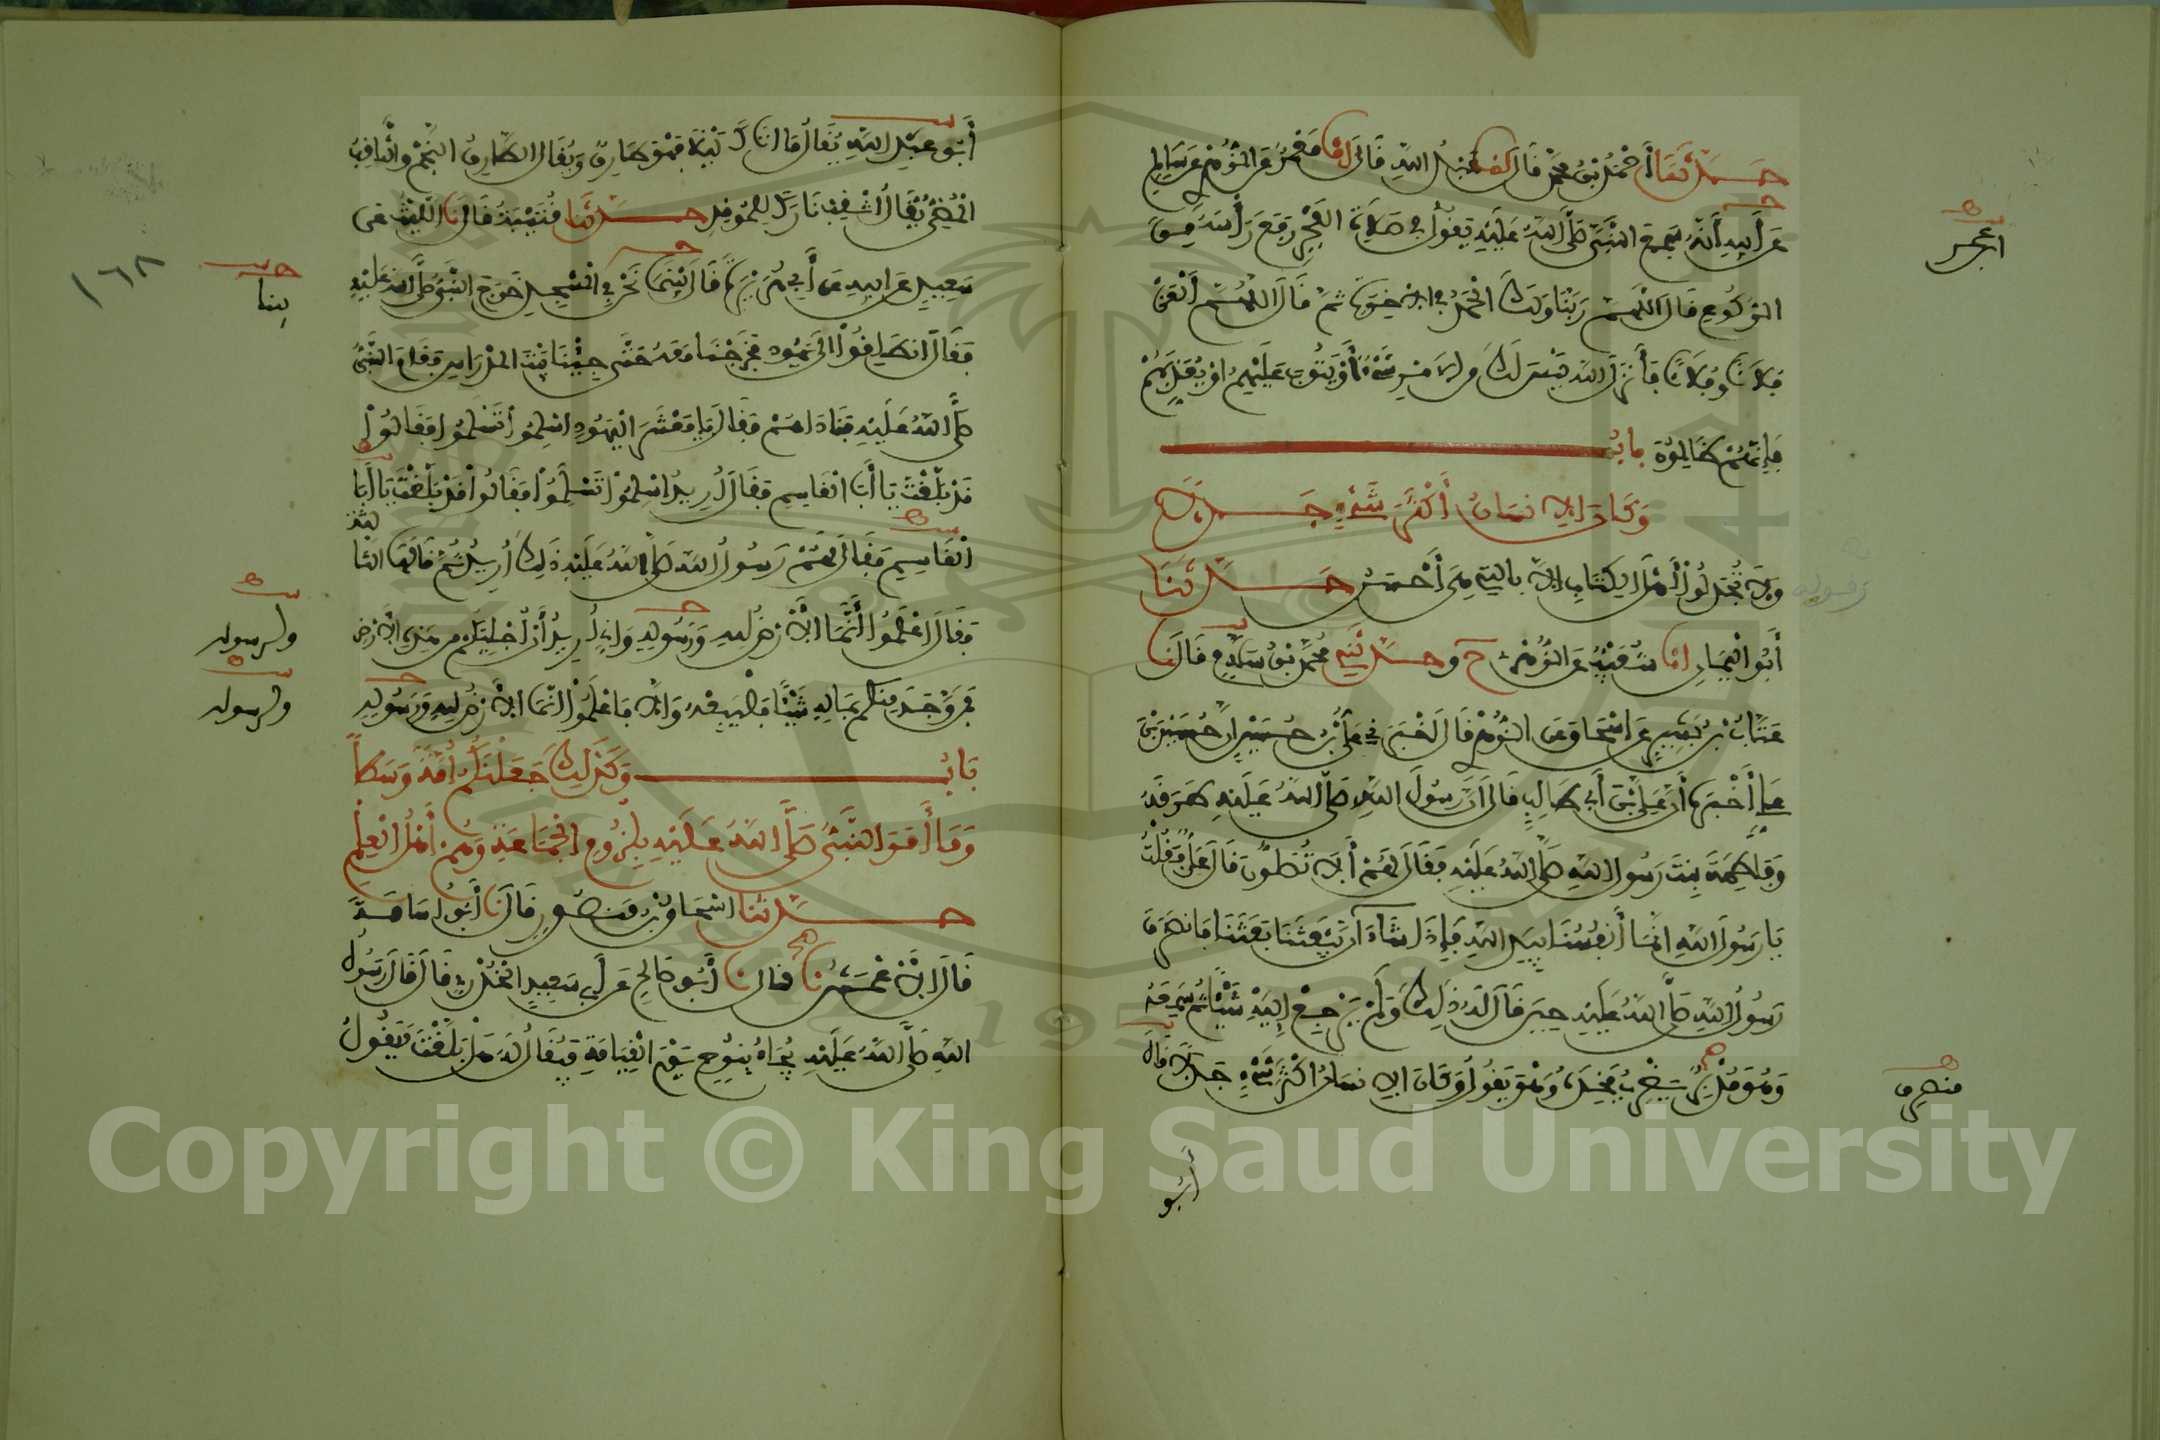 حدثنا أحمد بن محمد قال عبد الله قال انا معمر عن الزهري عن سالم
ابن عمر
عن أبيه أنه سمع النبي صلى الله عليه يقول في صلاة الفجر رفع رأسه من
الركوع قال اللهم ربنا ولك الحمد في الاخيرة ثم قال اللهم العن
فلانا وفلانا فأنزل الله ليس لك من الامر شيء أو يتوب عليهم او يعذبهم
فإنهم ظالمون باب
وكان الانسان أكثر شيء جدلا
ولا تجادلوا أهل الكتاب الا بالتي هي أحسن حدثنا
أبو اليمان انا شعيب عن الزهري ح وحدثني محمد بن سلام قال نا
عتاب بن بشير عن اسحاق عن الزهري قال اخبرني علي بن حسين ان حسين بن
علي أخبره أن علي بن أبي طالب قال ان رسول الله صلى الله عليه طرقه
وفاطمة بنت رسول الله صلى الله عليه فقال لهم ألا تصلون قال علي فقلت
يا رسول الله انما أنفسنا بيد الله فإذا شاء ان يبعثنا بعثنا فانصرف
رسول الله صلى الله عليه حين قال له ذلك ولم يرجع إليه شيئا ثم سمعه
وهو مدبر يضرب فخذه وهو يقول وكان الانسان اكثر شيء جدلا قال
منصرف
أبو
أبو عبد الله يقال ما اتاك ليلا فهو طارق ويقال الطارق النجم والثاقب
المضيء يقال اثقب نارك للموقد حدثنا قتيبة قال نا الليث عن
١٦٨
سعيد عن ابيه عن أبي هريرة قال بينما نحن في المسجد خرج النبي صلى الله عليه
بينا
فقال انطلقوا الى يهود فخرجنا معه حتى جئنا بيت المدراس فقام النبي
صلى الله عليه فناداهم فقال يا معشر اليهود اسلموا تسلموا فقالوا
قد بلغت يا أبا القاسم فقال أريد اسلموا تسلموا فقالوا قد بلغت يا أبا
القاسم فقال لهم رسول الله صلى الله عليه ذلك أريد ثم قالها الثالثة
فقال اعلموا أنما الارض لله ورسوله واني أريد أن أجليكم من هذه الارض
ولرسوله
فمن وجد منكم بماله شيئا فليبعه والا فاعلموا انما الارض لله ورسوله
ولرسوله
باب وكذلك جعلناكم أمة وسطا
وما أمر النبي صلى الله عليه بلزوم الجماعة وهم أهل العلم
حدثنا اسحاق بن منصور قال نا أبو اسامة
قال الاعمش نا قال نا أبو صالح عن أبي سعيد الخدري قال قال رسول
الله صلى الله عليه يجاء بنوح يوم القيامة فيقال له هل بلغت فيقول
Copyright © King Saud University